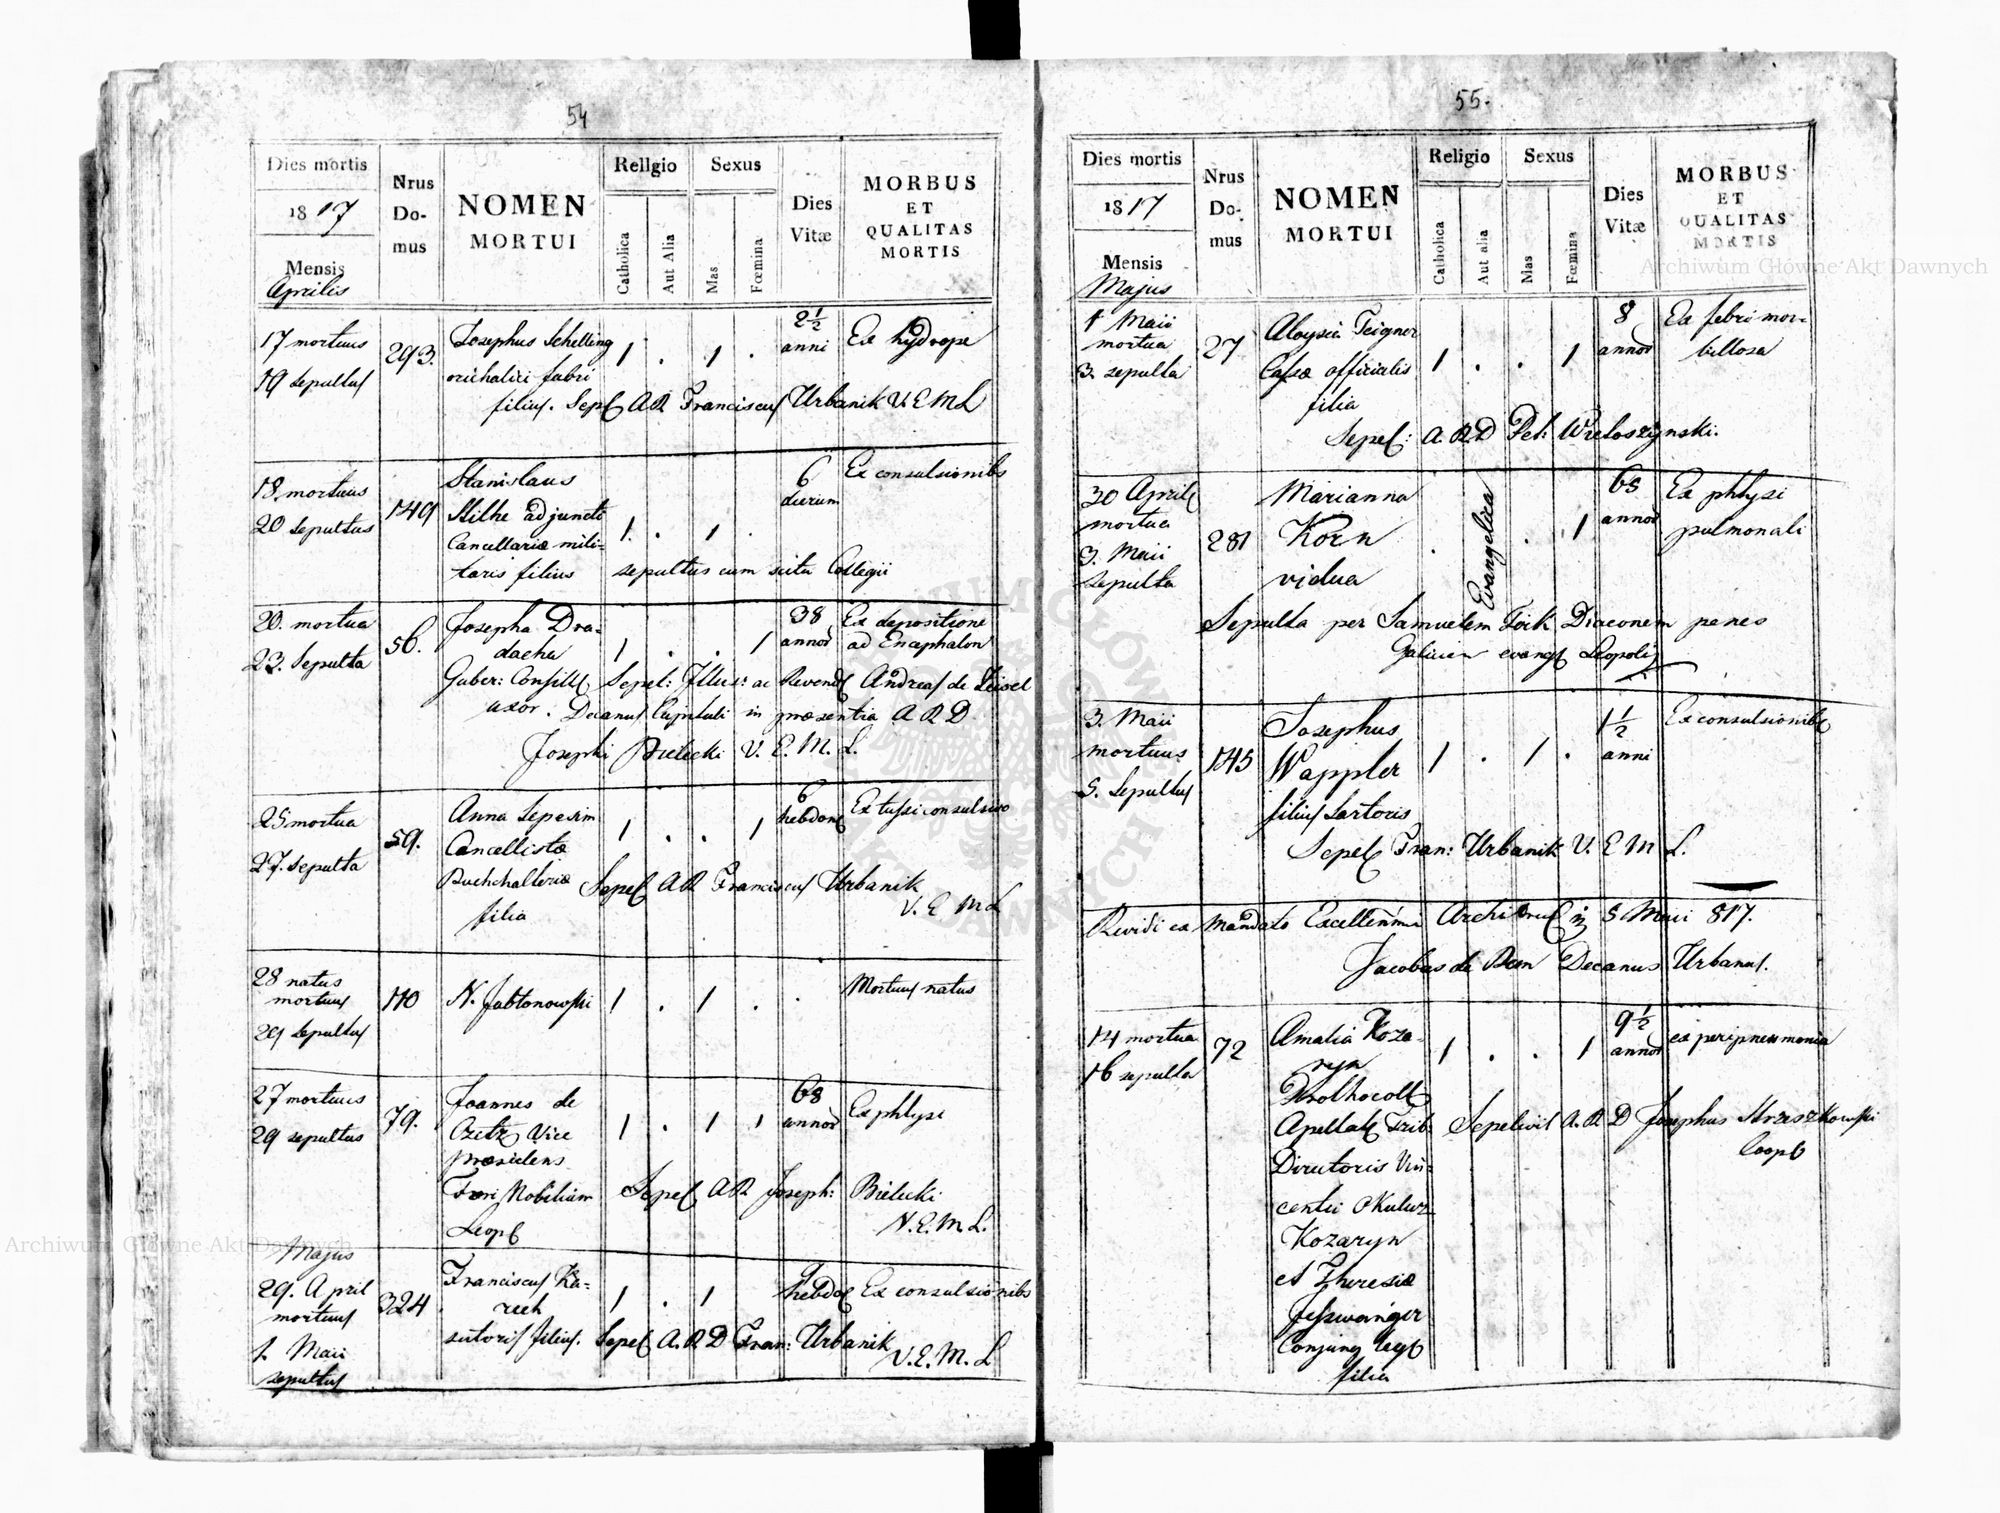 54
Dies mortis
1817
Mensis
Aprilis
Nrus
Do-
mus
NOMEN
MORTUI
Religio
Catholica
Aut Alia
Sexus
Mas
Fœmina
Dies
Vitæ
MORBUS
ET
QUALITAS
MORTIS
17 mortuus
19 sepultus
293.
Josephus Schelling
orichalici fabri
filius. Sepel A R Franciscus Urbanik V. E M L
1 . 1 .
2½
anni
Ex hydrope
18. mortuus
20 sepultus
149
Stanislaus
Hilhe adjuncti
Cancellariæ mili=
taris filius sepultus cum scitu Collegii
1. . 1 .
6
dierum
Ex consulsionibs
20. mortua
23. Sepulta
56.
Josepha Dra=
dacka
Guber: Consilli
uxor.
1 . . 1
38
annor
Ex depositione
ad Encephalon
Sepel: Illus: ac Revend Andreas de
Decanus Capituli in præsentia A R D
Josephi Bielecki V. E. M. L.
25 mortua
27. sepulta
59.
Anna Sepesim
Cancellistæ
Buchhalteriæ
filia
1 . . 1
6
hebdom
Ex tussi consulsivo
Sepel A R Franciscus Urbanik
V. E M L
28 natus
mortuus
29 sepultus
110
N. Jabłonowski
1 . 1 .
Mortuus natus
27 mortuus
29 sepultus
79.
Joannes de
Czetz Vice
præsidens
Fori Nobilium
Leopl
1 . 1 1
68
annor
Ex phtysi
Sepel A R Joseph: Bielecki
V. E. M L.
Majus
29. April
mortuus
1. Maii
sepultus
324
Franciscus Ka=
rech
sutoris filius. Sepel A. R D Fran: Urbanik
V. E. M. L
1 . 1
9
hebdo
Ex consulsionibs
55.
Dies mortis
1817
Mensis
Majus
Nrus
Do-
mus
NOMEN
MORTUI
Religio
Catholica
Aut alia
Sexus
Mas
Fœmina
Dies
Vitæ
MORBUS
ET
QUALITAS
MORTIS
1 Maii
mortua
3. sepulta
27
Aloysia Teigner
Cassæ officialis
filia
1 . . 1
8
annor
Ex febri mor=
billosa
Sepel: A. R. D Pet: Wieloszynski.
30 April
mortua
3. Maii
sepulta
281
Marianna
Korn
vidua
. Evangelica . 1
68
annor
Ex phtysi
pulmonali
Sepulta per Samuelem Diaconem penes
Galicien evang Leopoli
3. Maii
mortuus
5. Sepultus
145
Josephus
Wappler
filius Sartoris
1 . 1 .
1½
anni
Ex consulsionibs
Sepel Fran: Urbanik V. E M L.
Revidi ex mandato Excellenmi Archi 5 Maii 817.
Jacobus de Bem Decanus Urbanus.
14 mortua
16 sepulta
72
Amalia Koza=
ryn
Prothocoll
Apellat Trib
Directoris Vin=
centii
Kozaryn
et Theresiæ
Jesswanger
Conjung legt
filia
1 . . 1
9½
annor
ex peripneumonia
Sepelivit A. R D Josephus Strzeszkowski
Coopl
Archiwum Główne Akt Dawnych
Archiwum Główne Akt Dawnych